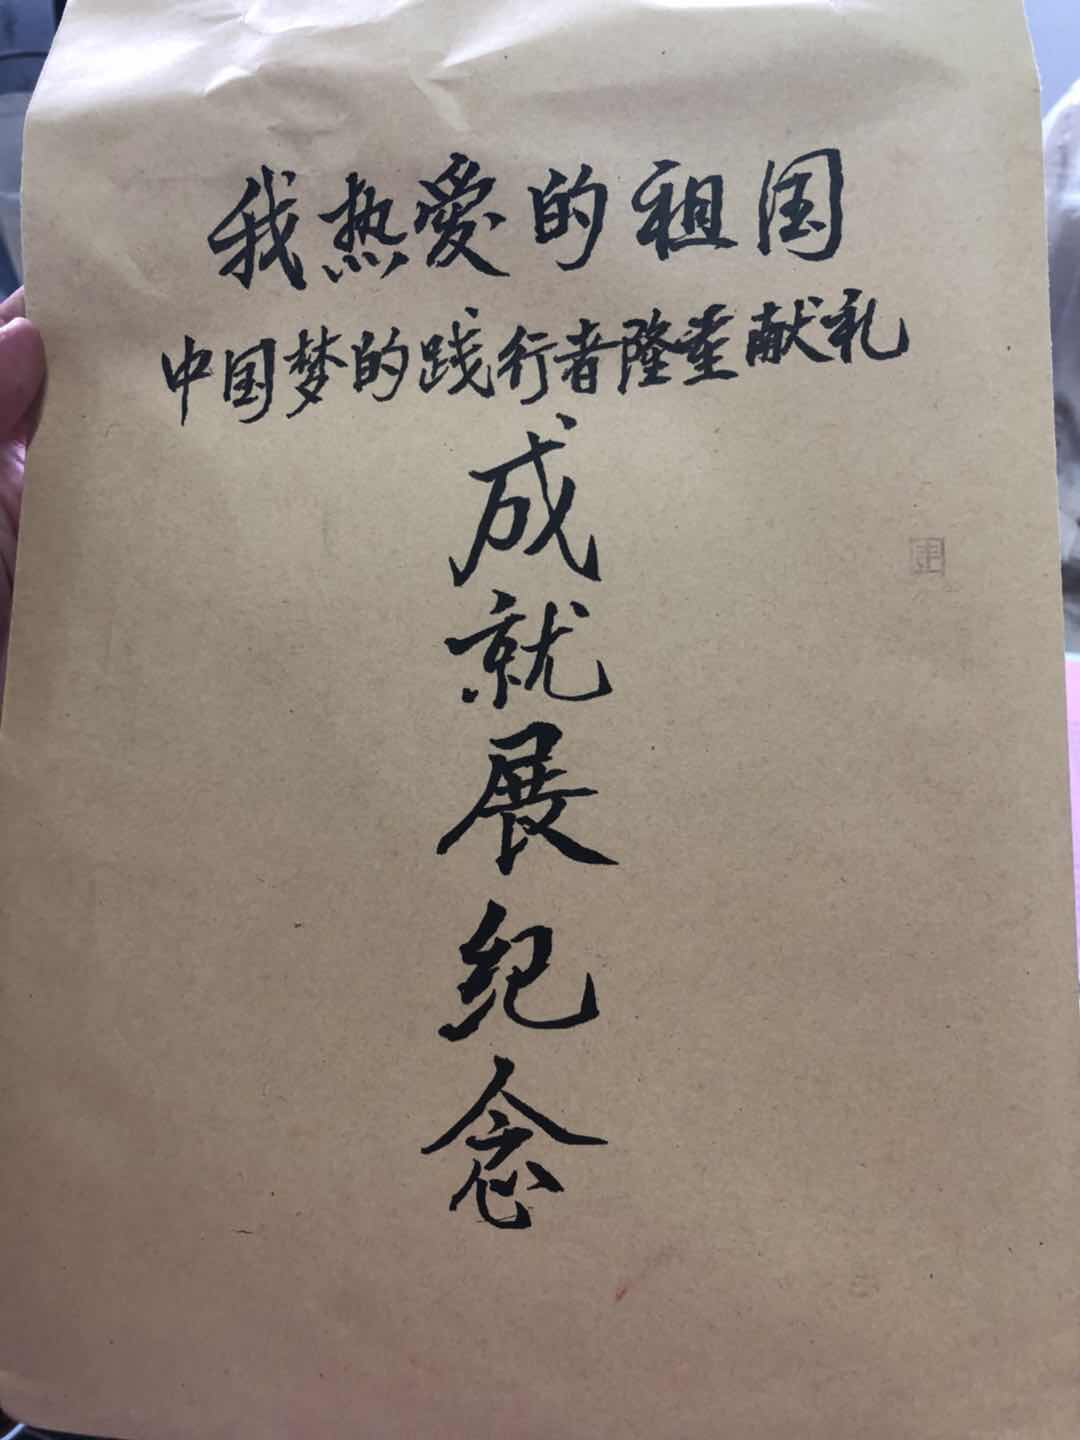 我热愛的祖国
中国梦的践行者隆重献礼
成就展纪念